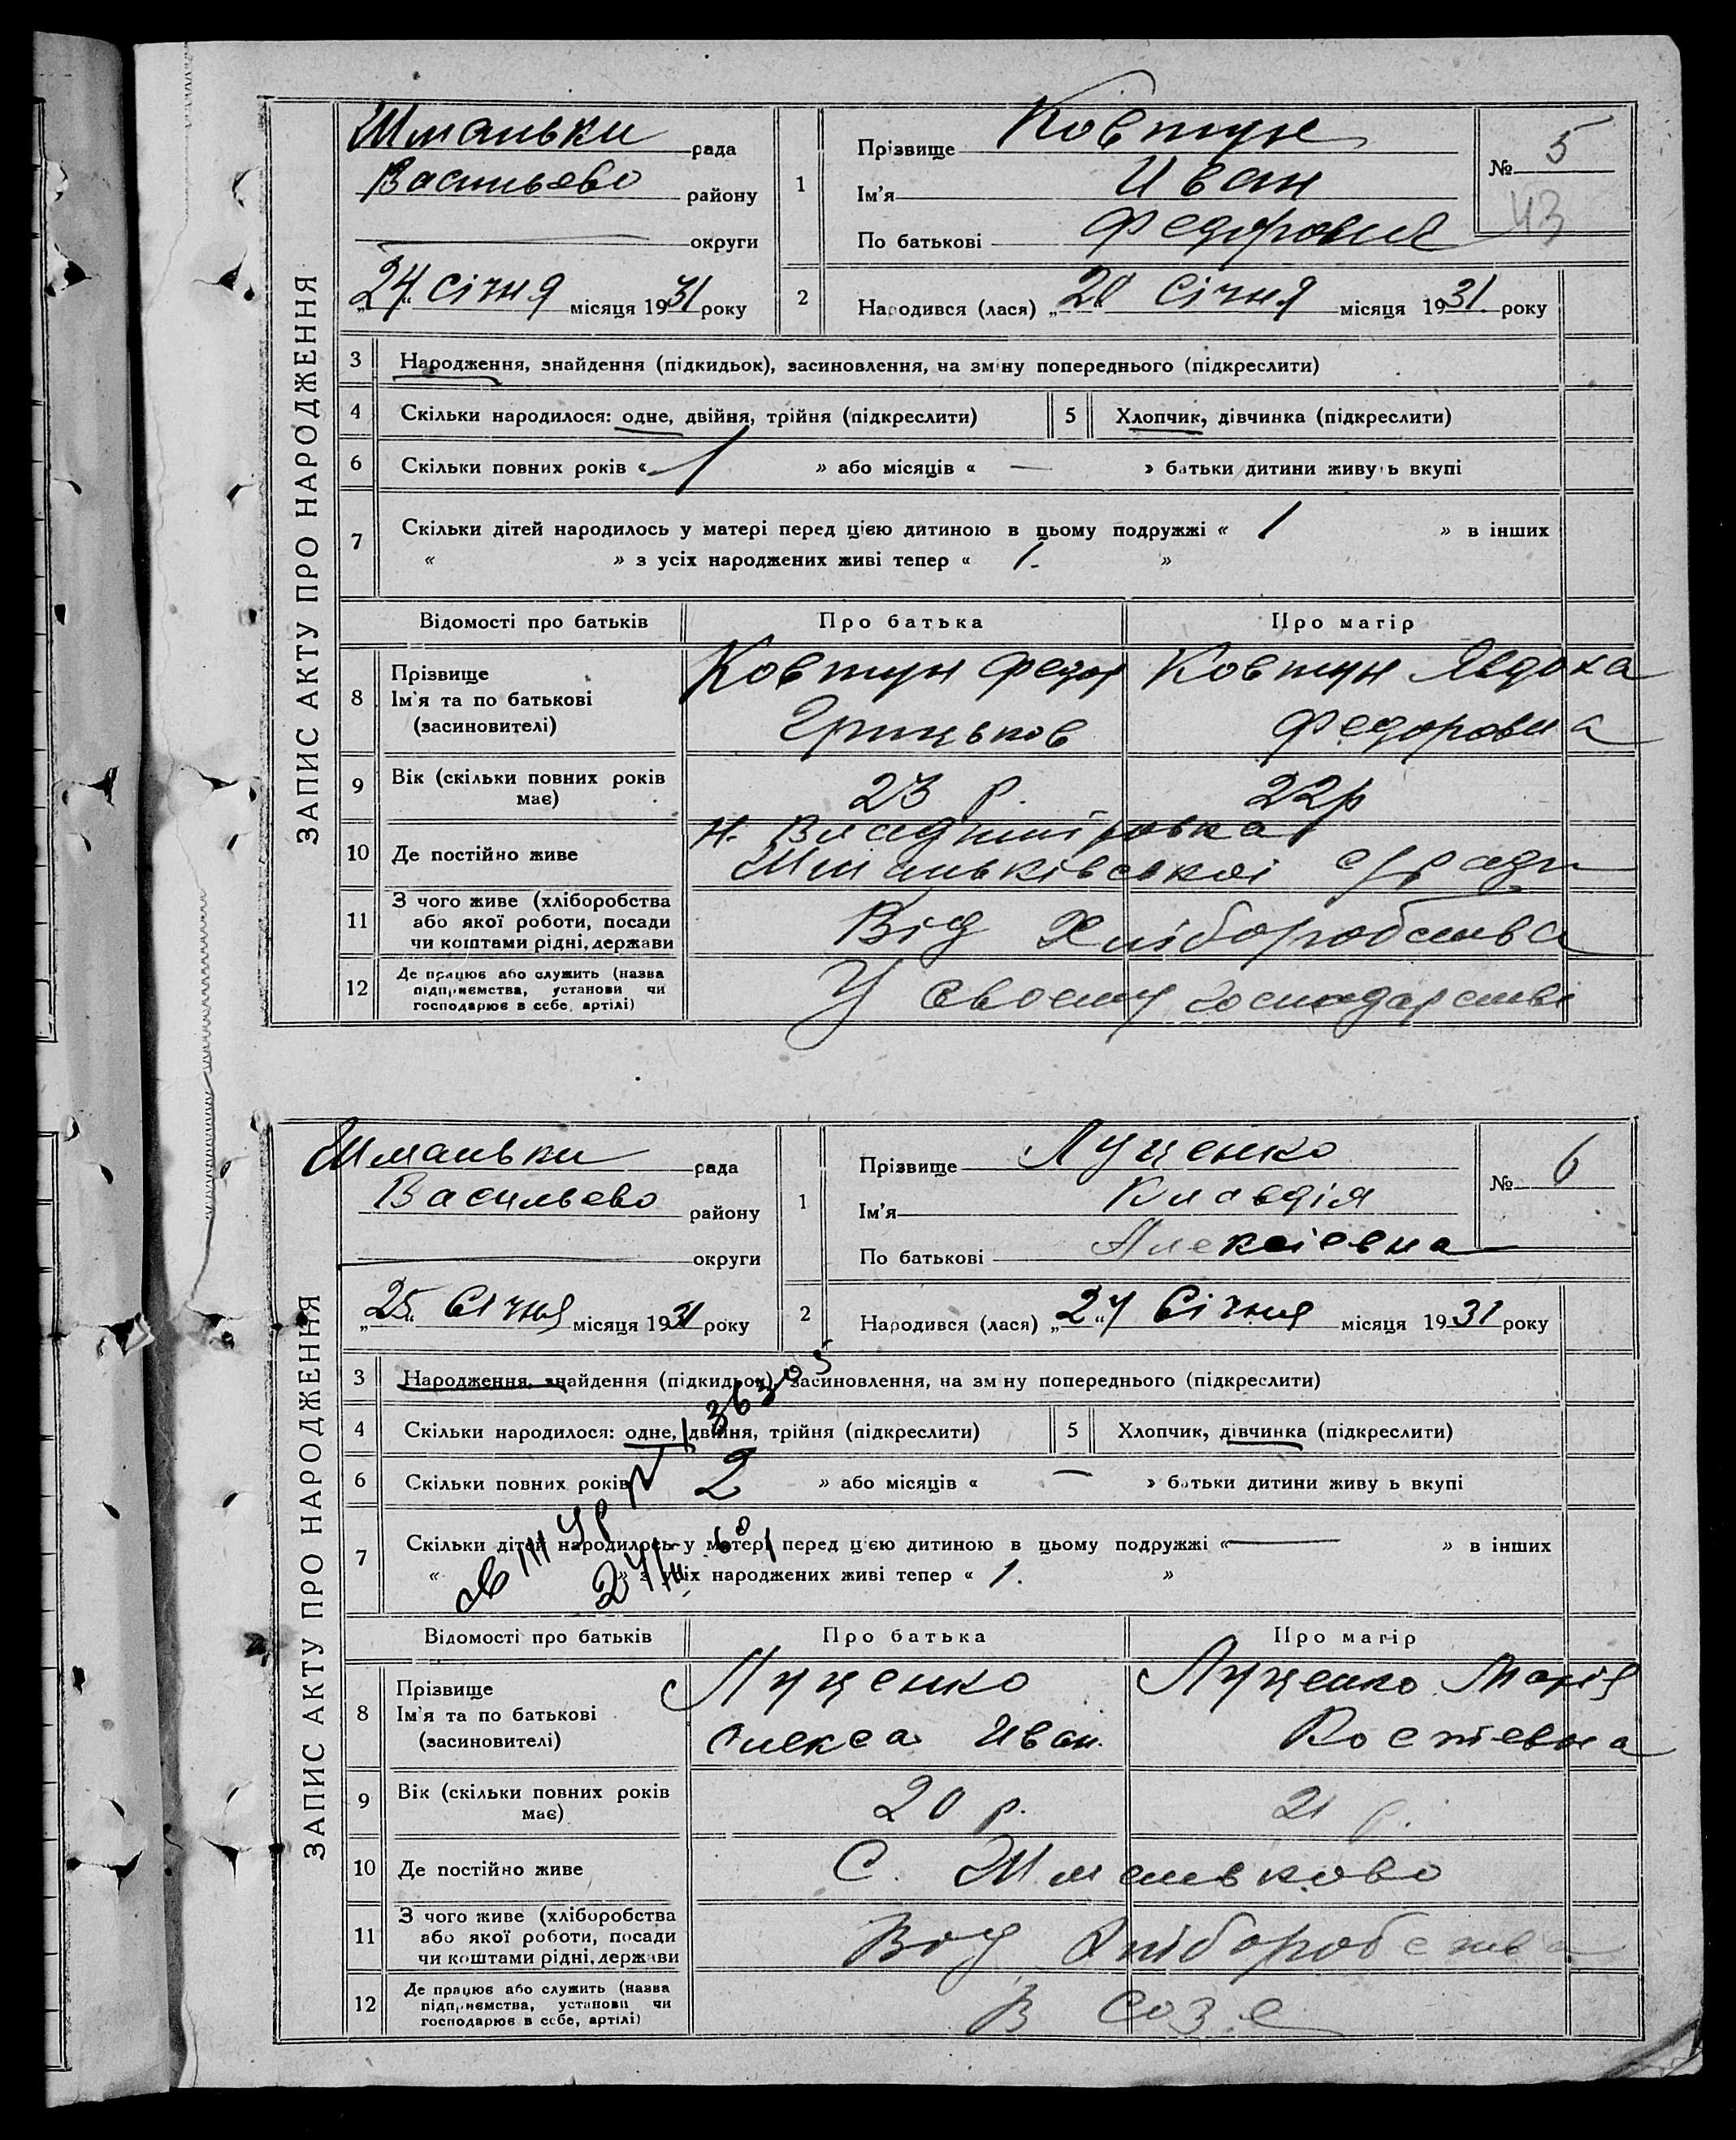 ЗАПИС АКТУ ПРО НАРОДЖЕННЯ
Шманьки рада
Васильево району
округи
„24“ січня місяця 1931 року
1 Прізвище Ковтун
Ім'я Иван
По батькові Федорович
№ 5
43
2 Народився (лася) „20“ Січня місяця 1931 року
3 Народження, знайдення (підкидьок), засиновлення, на зміну попереднього (підкреслити)
4 Скільки народилося: одне, двійня, трійня (підкреслити) 5 Хлопчик, дівчинка (підкреслити)
6 Скільки повних років « 1 » або місяців « — » батьки дитини живуть вкупі
7 Скільки дітей народилось у матері перед цією дитиною в цьому подружжі « 1 » в інших
« » з усіх народжених живі тепер « 1. »
Відомості про батьків Про батька Про матір
8 Прізвище
Ім'я та по батькові
(засиновителі)
Ковтун Федор
Грицьков
Ковтун Явдоха
Федоровна
9 Вік (скільки повних років має) 23 р. 22р
10 Де постійно живе
Н. Владиміровка
Шманьківської с/ради
11 З чого живе (хліборобства
або якої роботи, посади
чи коштами рідні, держави
Від Хліборобства
12 Де працює або служить (назва
підприємства, установи чи
господарює в себе, артілі)
У своему господарстві
ЗАПИС АКТУ ПРО НАРОДЖЕННЯ
Шманьки рада
Васильево району
округи
„25“ Січня місяця 1931 року
1 Прізвище Луценко
Ім'я Клавдія
По батькові Алексіевна
№ 6
2 Народився (лася) „24 Січня місяця 1931 року
3 Народження, знайдення (підкидьок), засиновлення, на зміну попереднього (підкреслити)
4 Скільки народилося: одне, двійня, трійня (підкреслити) 5 Хлопчик, дівчинка (підкреслити)
6 Скільки повних років 2 » або місяців « — » батьки дитини живуть вкупі
7 Скільки дітей народилось у матері перед цією дитиною в цьому подружжі « — » в інших
« » з усіх народжених живі тепер « 1. »
Відомості про батьків Про батька Про матір
8 Прізвище
Ім'я та по батькові
(засиновителі)
Луценко
Олекса Иван.
Луценко Марія
Костевна
9 Вік (скільки повних років має) 20 р. 21 р.
10 Де постійно живе С. Шманьково
11 З чого живе (хліборобства
або якої роботи, посади
чи коштами рідні, держави
Від Хліборобства
12 Де працює або служить (назва
підприємства, установи чи
господарює в себе, артілі)
В Созе